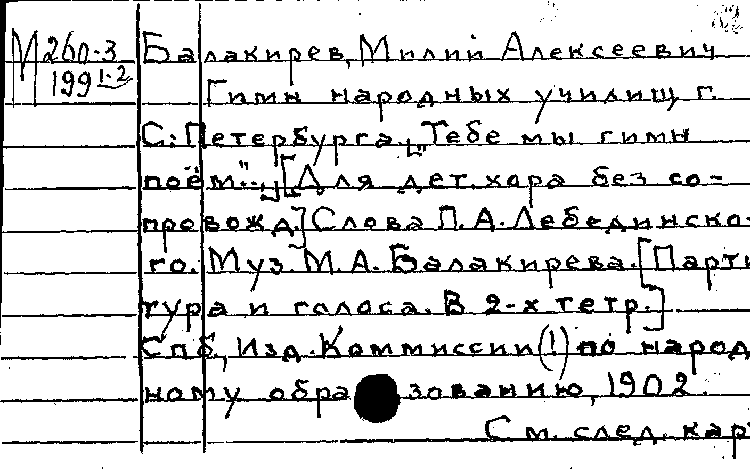 М 260-3
199 1-2
Балакирев, Милий Алексеевич
Гимн народных училищ г.
С.-Петербурга „Тебе мы гимн
поём"... [Для дет. хора без со-
провожд.] Слова П. А. Лебединско-
го. Муз. М. А. Балакирева. [Парти
тура и голоса. В 2-х тетр.]
Спб, Изд. Коммиссии (!) по народ
ному образованию, 1902.
См. след. кар